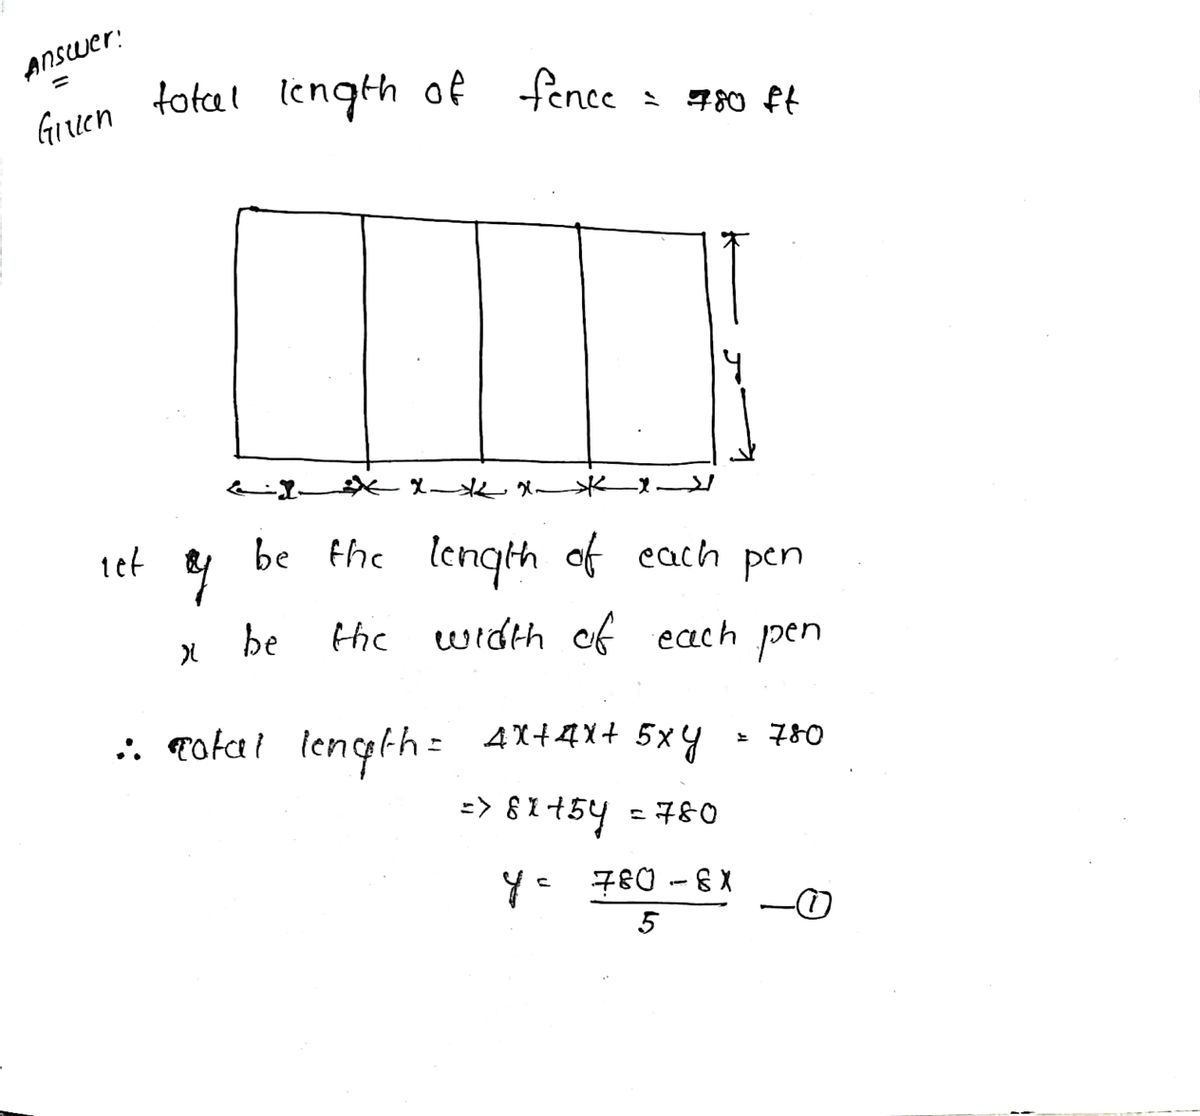 Answer:
=
Given total length of fence = 780 ft
y
x x x x
let y be the length of each pen
x be the width of each pen
∴ Total length = 4x+4x+ 5xy = 780
=> 8x+5y = 780
y = 780 - 8x / 5 —①